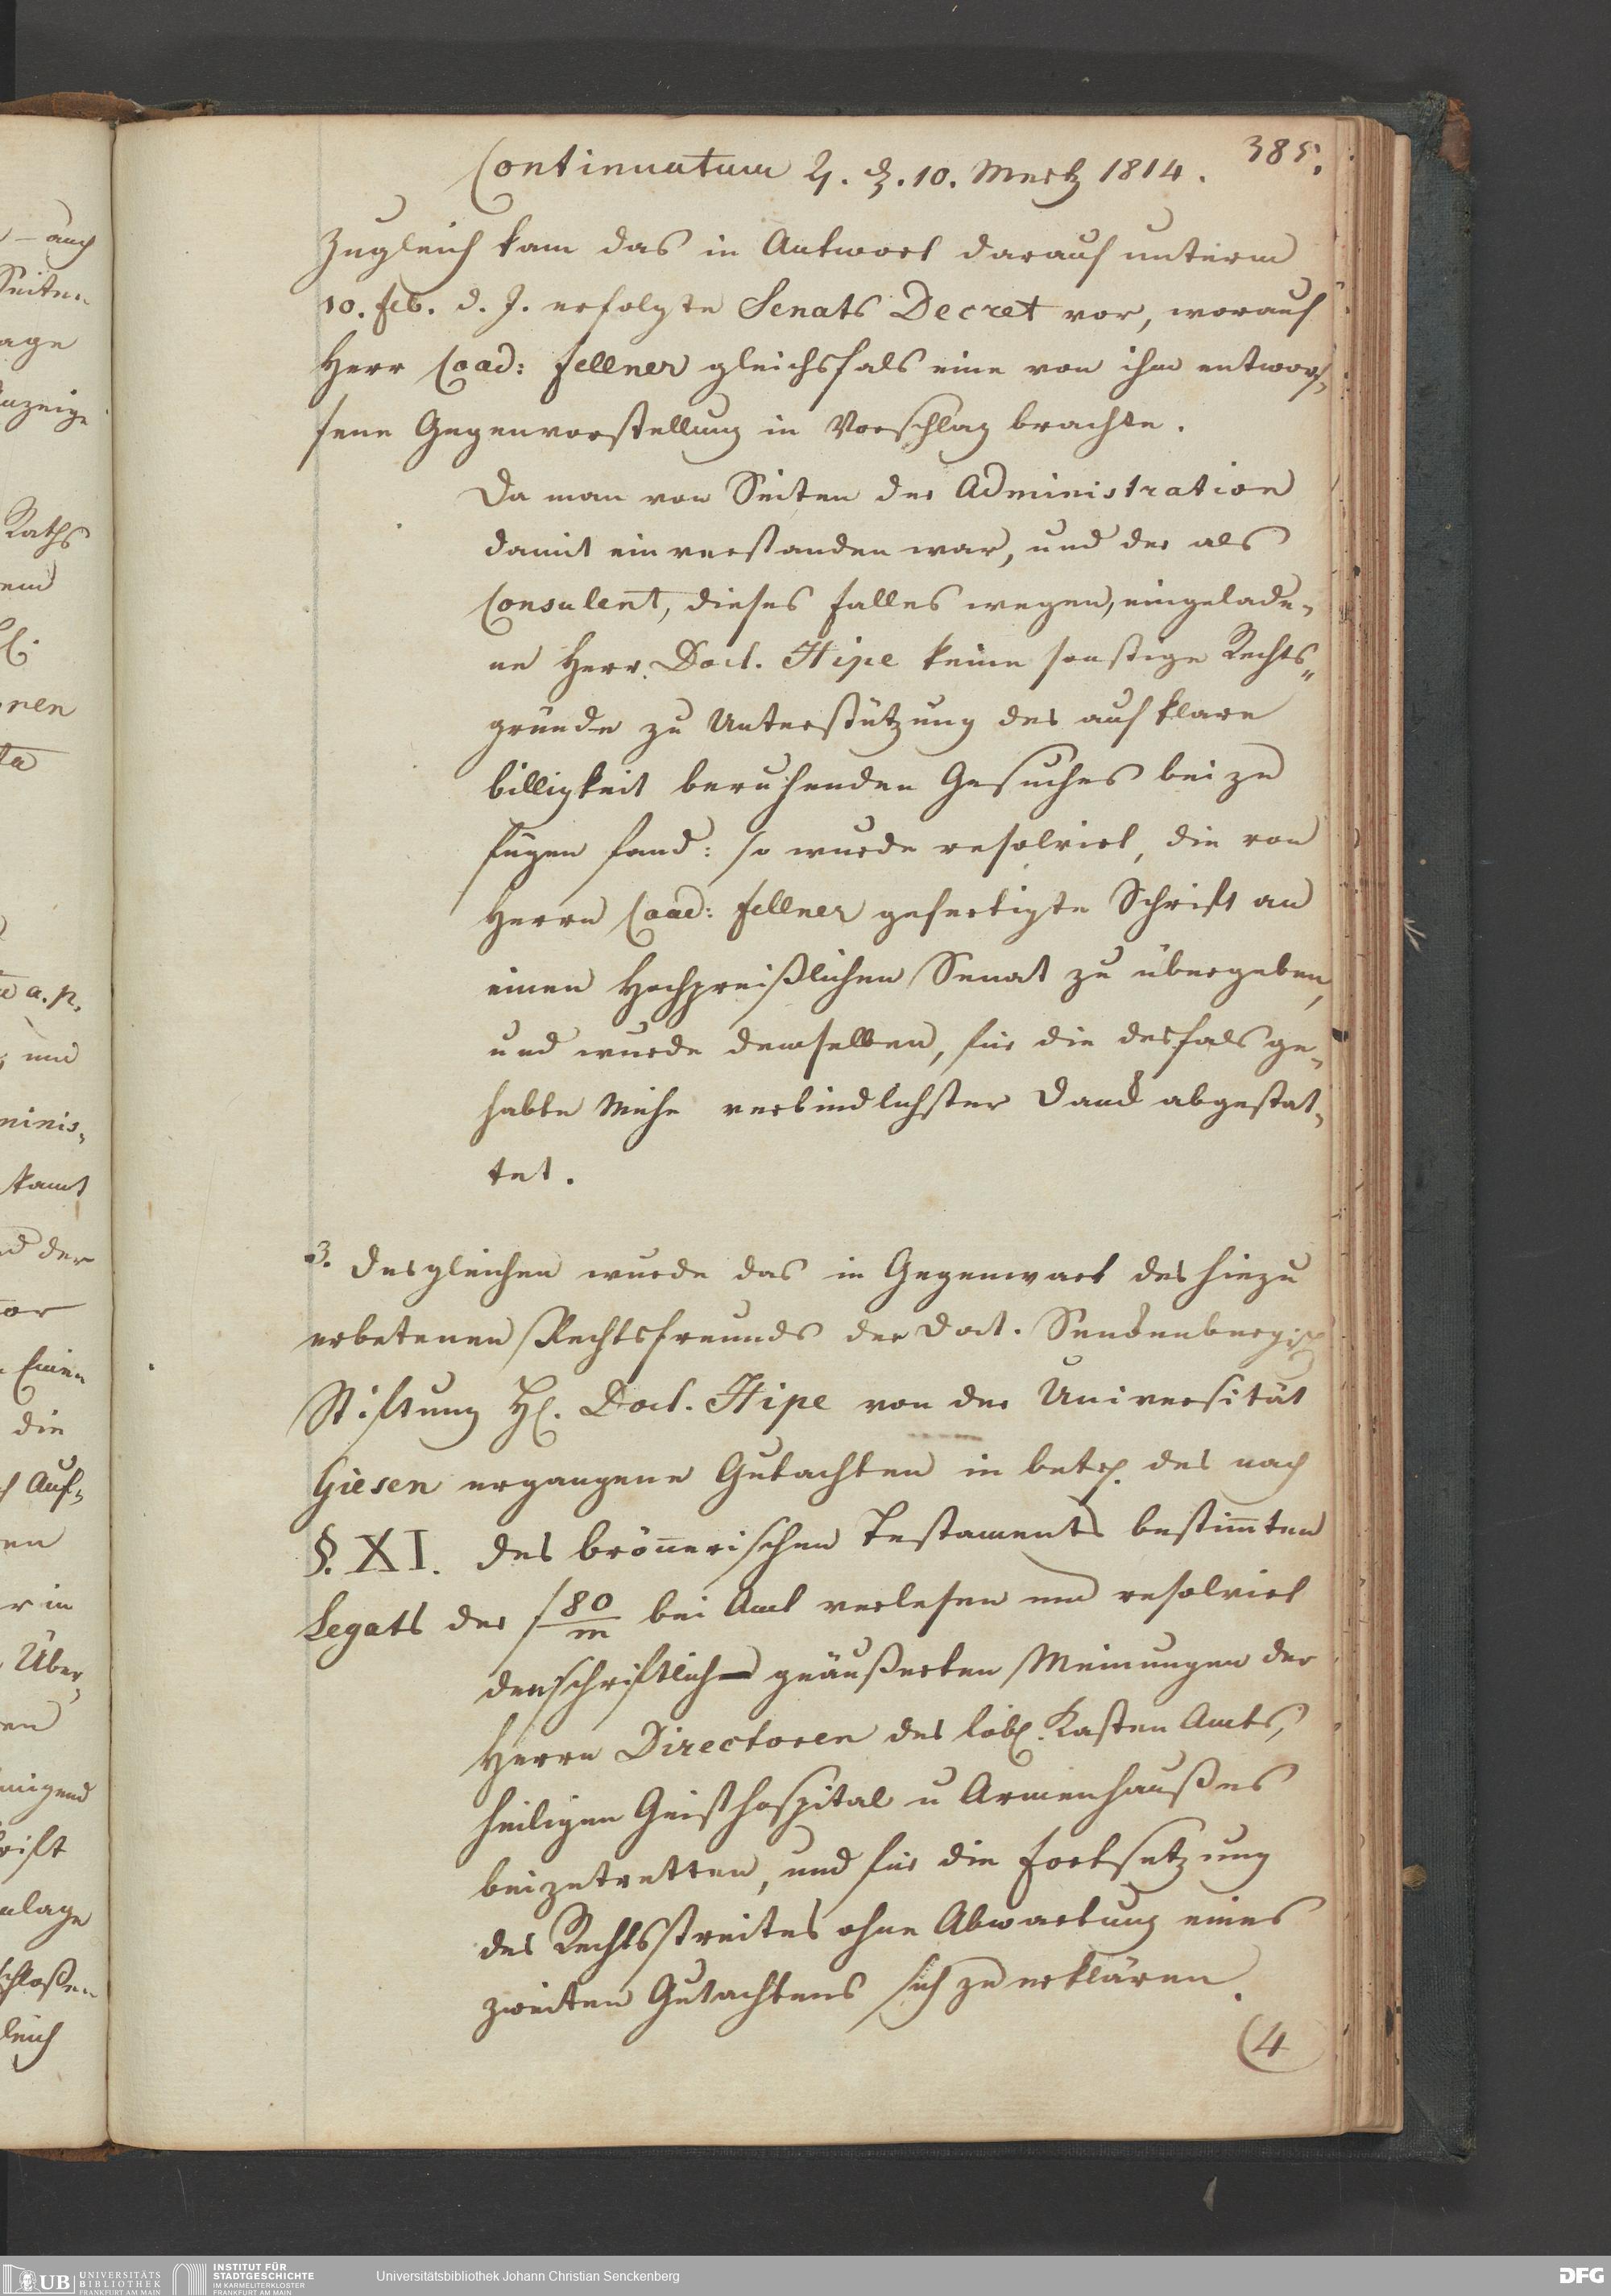 385.
Continuatum ♃. d. 10. Mertz 1814.
Zugleich kam das in Antwort darauf unterm
10. Feb. d. J. erfolgte Senats Decret vor, worauf
Herr Coad: Fellner gleichsfals eine von ihm entwor-
fene Gegenvorstellung in Vorschlag brachte.
Da man von Seiten der Administration
damit einverstanden war, und der als
Consulent, dieses Falles wegen, eingelade-
ne Herr Doct. Hipe keine sonstige Rechts-
gründe zu Unterstützung des auf klare
billigkeit beruhenden Gesuches beizu
fügen fand: so wurde resolvirt, die von
Herrn Coad: Fellner gefertigte Schrift an
einen Hochpreißlichen Senat zu übergeben,
und wurde demselben, für die desfals ge-
habte Mühe verbindlichster Danck abgestat-
tet.
3. Desgleichen wurde das in Gegenwart des hiezu
erbetenen Rechtsfreunds der Doct. Senckenbergisch
Stiftung H. Doct. Hipe von der Universität
Giesen ergangene Gutachten in betr. des nach
§. XI. des brönerischen Testaments bestimten
Legats der f 80/m bei Amt verlesen und resolvirt
den schriftlich geäußerten Meinungen der
Herrn Directoren des löbl. Kasten Amts,
heiligen Geisthospital u Armenhaußes
beizutretten, und für die Fortsetzung
des Rechtsstreites ohne Abwartung eines
zweiten Gutachtens sich zu erklären.
(4
UB UNIVERSITÄTS
BIBLIOTHEK
FRANKFURT AM MAIN
INSTITUT FÜR
STADTGESCHICHTE
IM KARMELITERKLOSTER
FRANKFURT AM MAIN
Universitätsbibliothek Johann Christian Senckenberg
DFG